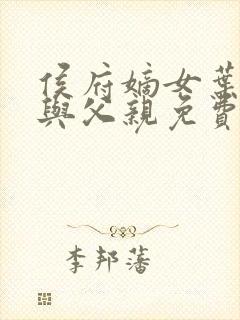 侯府嫡女葉
與父親免費
李邦藩